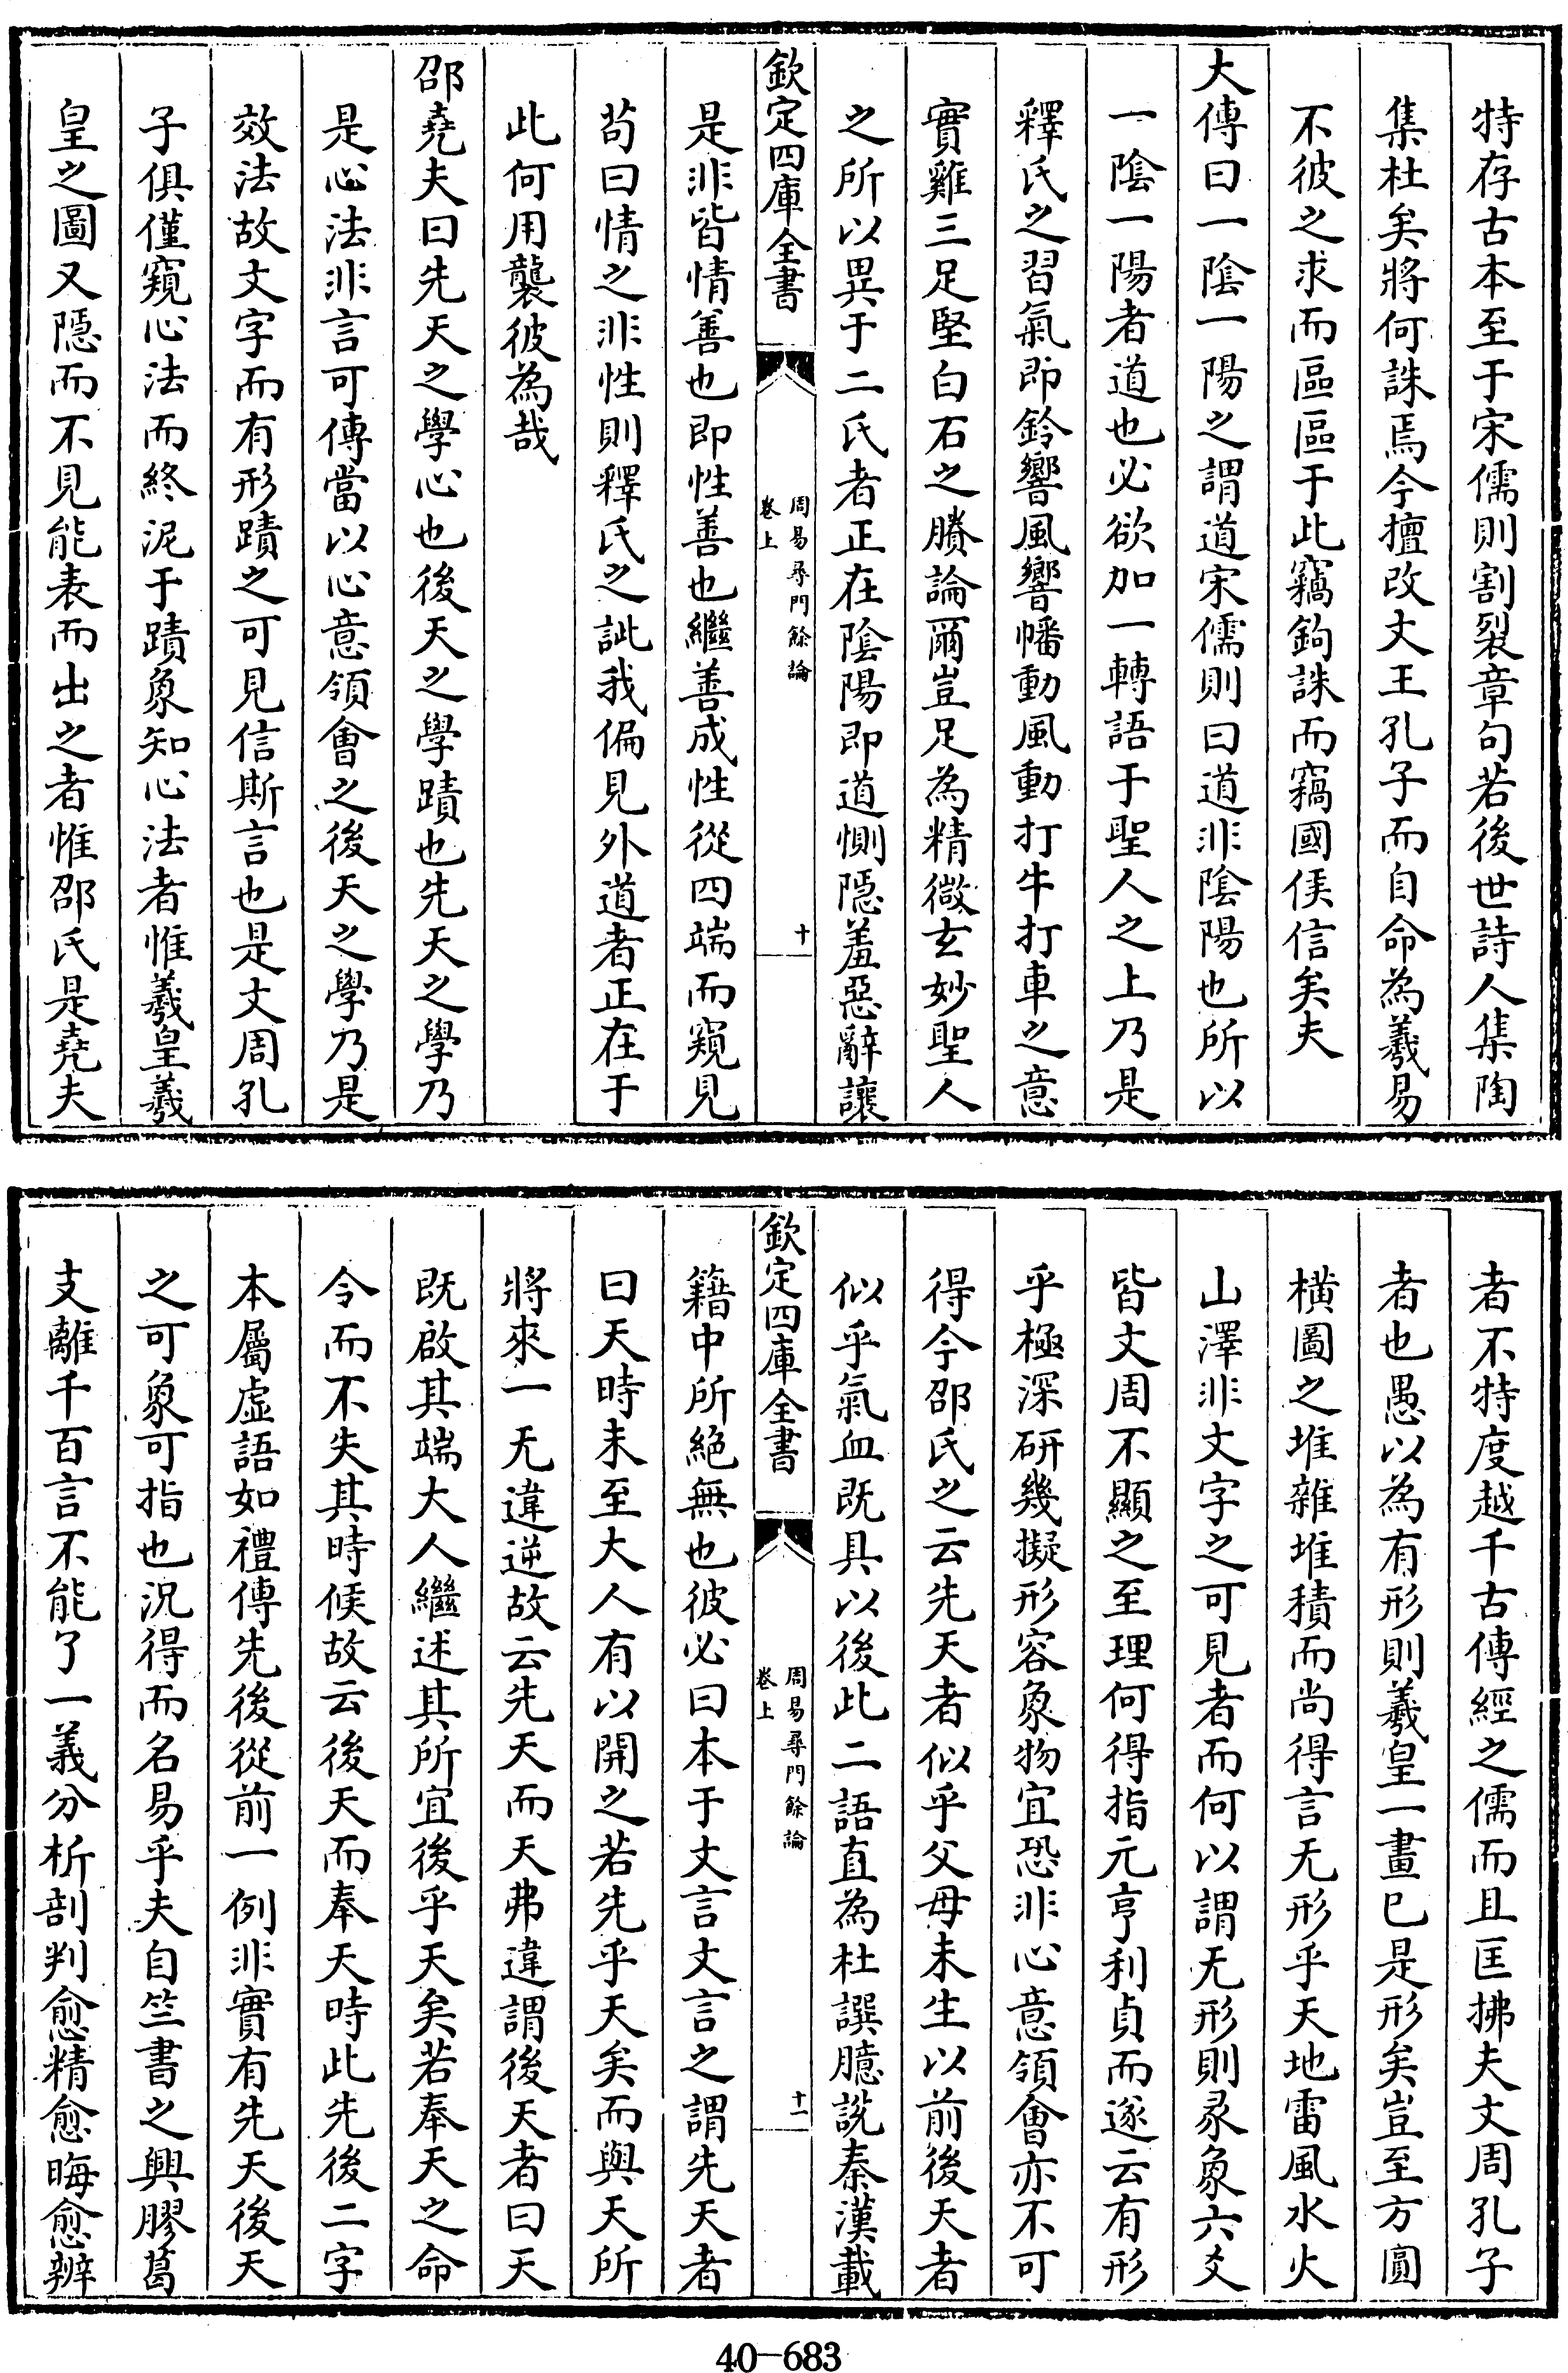 特存古本至于宋儒則割裂章句若後世詩人集陶
集杜矣將何誅焉今擅改文王孔子而自命為羲易
不彼之求而區區于此竊鉤誅而竊國侯信矣夫
大傳曰一陰一陽之謂道宋儒則曰道非陰陽也所以
一陰一陽者道也必欲加一轉語于聖人之上乃是
釋氏之習氣即鈴響風響幡動風動打牛打車之意
實雞三足堅白石之賸論爾豈足為精微玄妙聖人
之所以異于二氏者正在陰陽即道惻隱羞惡辭讓
欽定四庫全書
周易尋門餘論
卷上
十
是非皆情善也即性善也繼善成性從四端而窺見
苟曰情之非性則釋氏之訿我偏見外道者正在于
此何用襲彼為哉
邵堯夫曰先天之學心也後天之學蹟也先天之學乃
是心法非言可傳當以心意領會之後天之學乃是
效法故文字而有形蹟之可見信斯言也是文周孔
子俱僅窺心法而終泥于蹟象知心法者惟羲皇羲
皇之圖又隱而不見能表而出之者惟邵氏是堯夫
者不特度越千古傳經之儒而且匡拂夫文周孔子
者也愚以為有形則羲皇一畫已是形矣豈至方圓
橫圖之堆雜堆積而尚得言无形乎天地雷風水火
山澤非文字之可見者而何以謂无形則彖象六爻
皆文周不顯之至理何得指元亨利貞而遂云有形
乎極深研幾擬形容象物宜恐非心意領會亦不可
得今邵氏之云先天者似乎父母未生以前後天者
似乎氣血既具以後此二語直為杜譔臆說秦漢載
欽定四庫全書
周易尋門餘論
卷上
十一
籍中所絕無也彼必曰本于文言文言之謂先天者
曰天時未至大人有以開之若先乎天矣而與天所
將來一无違逆故云先天而天弗違謂後天者曰天
既啟其端大人繼述其所宜後乎天矣若奉天之命
令而不失其時候故云後天而奉天時此先後二字
本屬虛語如禮傳先後從前一例非實有先天後天
之可象可指也況得而名易乎夫自竺書之興膠葛
支離千百言不能了一義分析剖判愈精愈晦愈辨
40-683